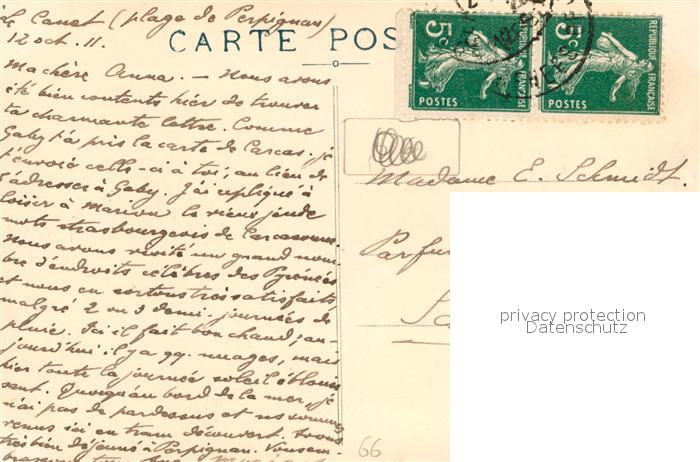 Le Canet (plage de Perpignan)
12 oct. 11.
CARTE POS
5c
5c
REPUBLIQUE FRANÇAISE
POSTES
POSTES
Ma chère Anna. — Nous avons
été bien contents hier de trouver
ta charmante lettre. Comme
Gaby t'a pris la carte de Carcas. je
t'envoie celle-ci à toi, au lieu de
l'adresser à Gaby. J'ai expliqué à
loisir à Marion le vieux jeu de
mots strasbourgeois de Carcassonne.
Nous avons visité un grand nom-
bre d'endroits célèbres des Pyrénées
et nous en sortons très satisfaits,
malgré 2 ou 3 demi-journées de
pluie. Ici il fait bon chaud; au-
jourd'hui il y a qq. nuages, mais
hier toute la journée soleil éblouis-
sant. Quoiqu'au bord de la mer, je
n'ai pas de pardessus et ns sommes
venus ici en tram découvert. Avons
très bien déjeuné à Perpignan. Vous em-
Madame E. Schmidt.
Parfu
66
privacy protection
Datenschutz